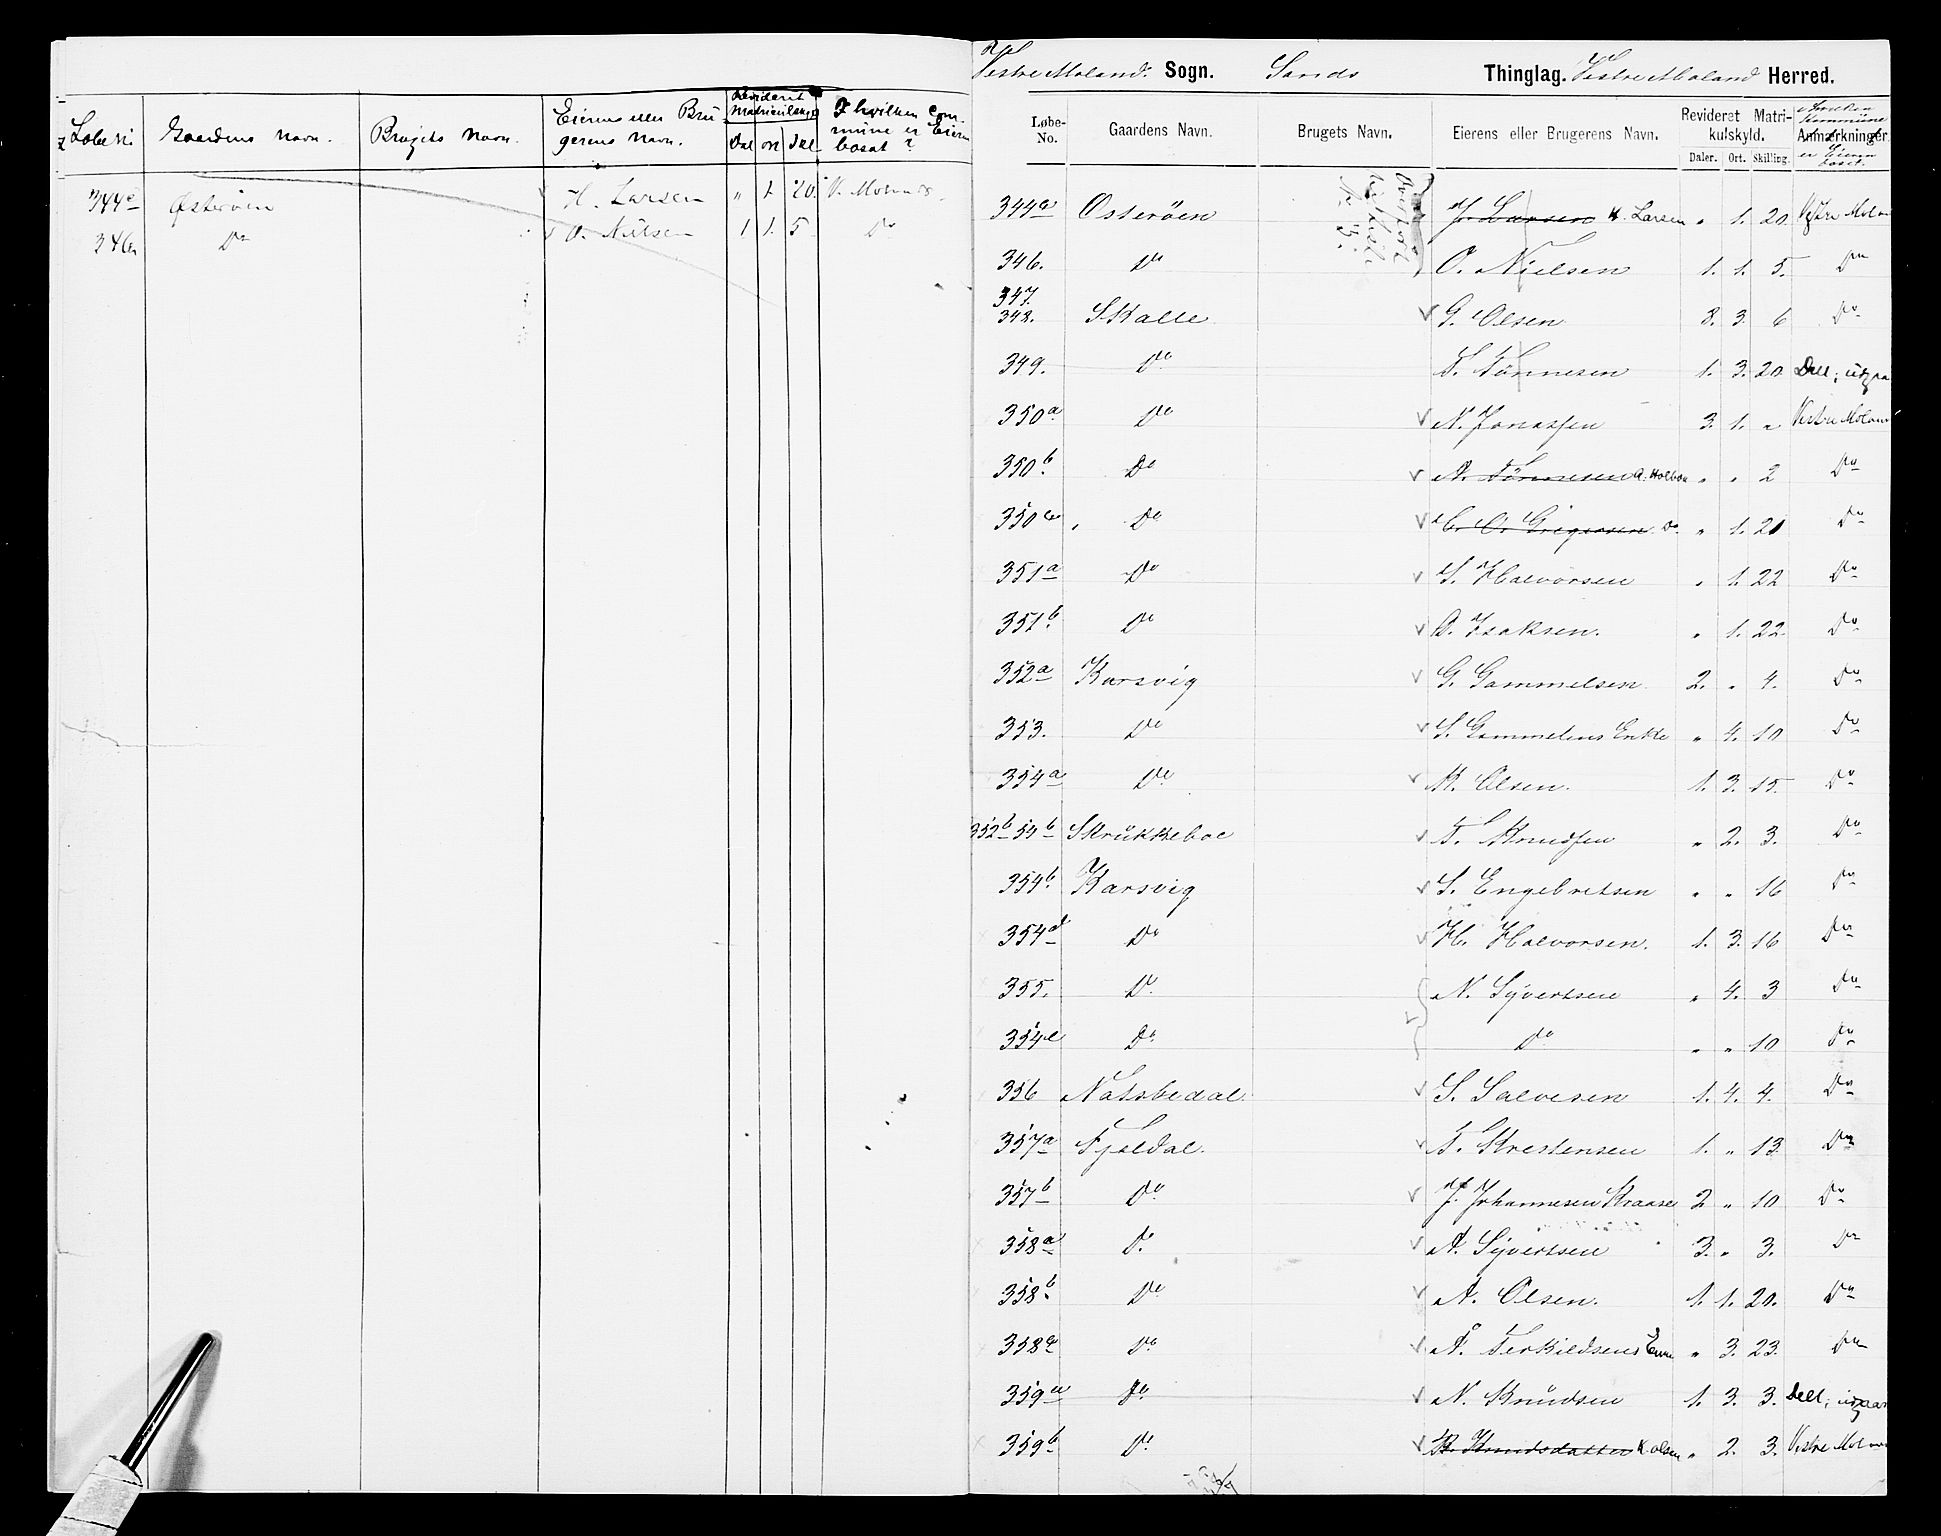 Løbe N. Gaardens Navn. Brugets Navn. Eierens eller Brugerens Navn. Revideret Matriculskyld Dal ort Skl I hvilken Commune er Eieren bosat?
344c Østerøen H. Larsen " 1 20. V. Moland
346 Do O. Nilsen 1 1. 5 Do
Vestre Moland. Sogn. Sands Thinglag. Vestre Moland Herred.
Løbe-No. Gaardens Navn. Brugets Navn. Eierens eller Brugerens Navn. Revideret Matrikulskyld. Daler. Ort. Skilling. Anmærkninger
344a Osterøen J. Larsen H. Larsen " 1. 20 Vestre Molan
346. Do O. Nielsen 1. 1. 5. Do
347.
348. Skalle G. Olsen 8. 3. 6 Do
349. Do T. Tönnesen 1. 3. 20 Dell; udgaa
350a Do N. Jonassen 3. 1. " Vestre Molan
350b Do A. Tönnesen A. Holbon " " 2 Do
350c Do C. O. Gregersen Do " 1. 20 Do
351a Do S. Halvorsen " 1. 22 Do
351b Do O. Isaksen. " 1. 22. Do
352a Karsvig G. Gammelsen 2. " 4. Do
353. Do S. Gammelsens Enke " 4. 10 Do
354a Do K. Olsen. 1. 3. 15. Do
352b 54b Skrükkeboe T. Knudsen " 2. 3. Do
354b. Karsvig S. Engebretsen " " 16 Do
354d Do H. Halvorsen. 1. 3. 16 Do
355. Do N. Syvertsen " 4. 3 Do
354e Do Do " " 10 Do
356 Natsbedal S. Salvesen 1. 4. 4. Do
357a Fjeldal. T. Krestensen 1. " 13 Do
357b Do J. Johannesen Kraase 2 " 10 Do
358a Do A. Syvertsen 3. " 3. Do
358b Do A. Olsen. 1. 1. 20. Do
358c Do A. Terkildsens Enke " 3. 23. Do
359a Do N. Knüdsen 1. 3. 3. Dell; udgaar
359b Do K. Olsen " 2. 3. Vestre Molan